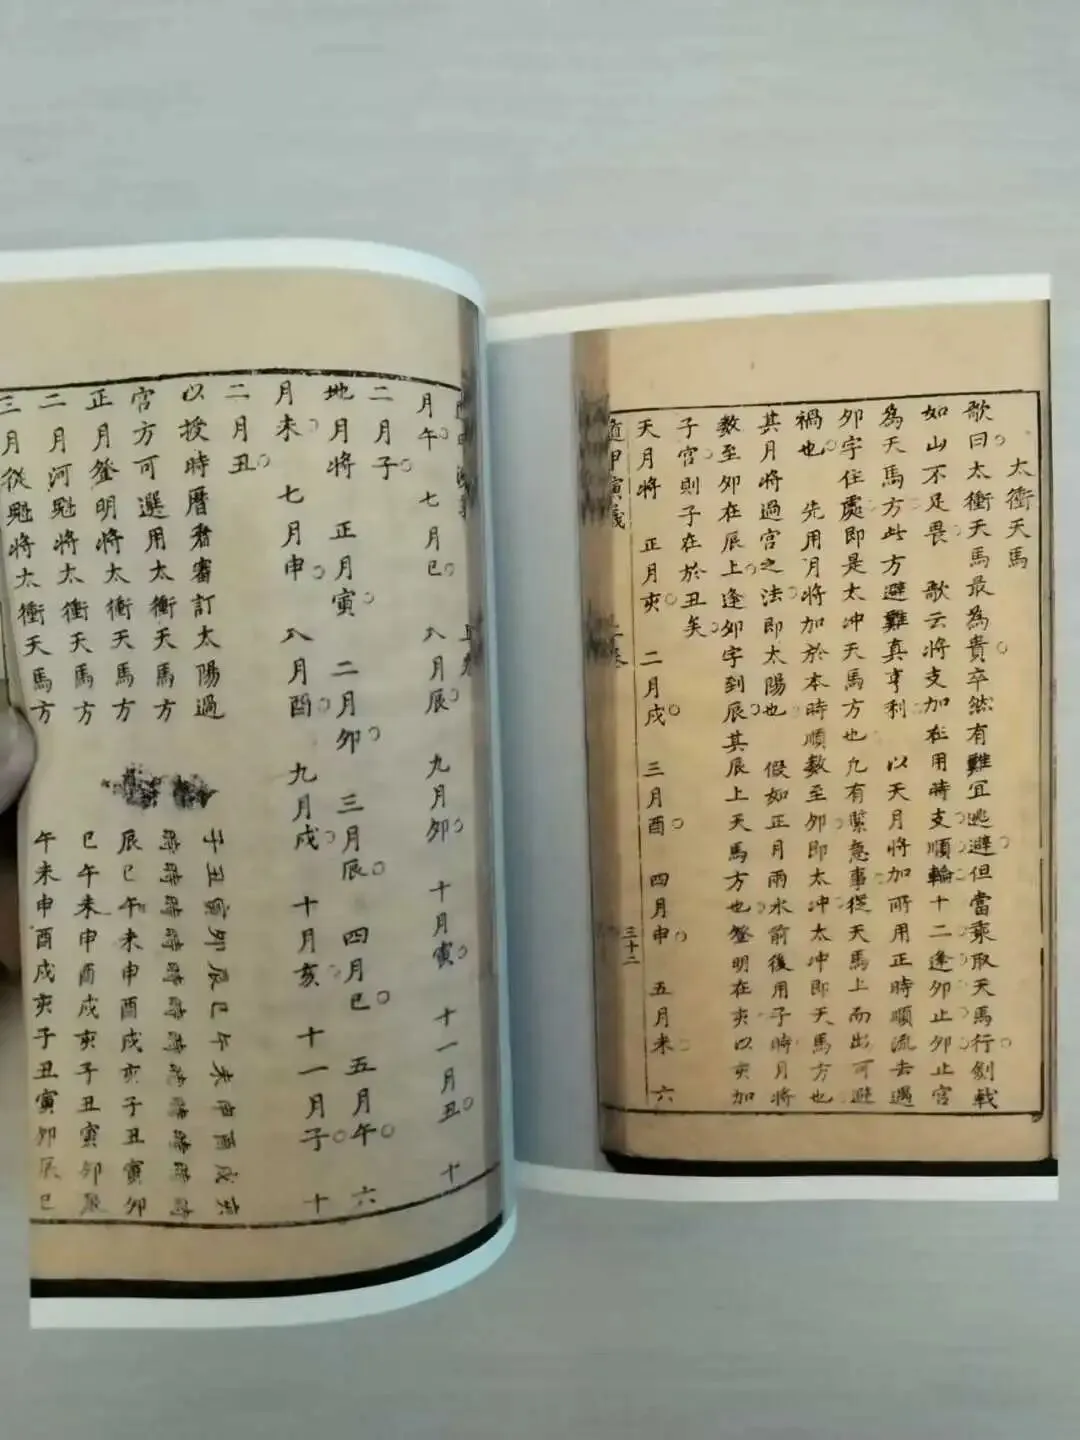 太衝天馬
歌曰太衝天馬最為貴卒然有難宜逃避但當乘取天馬行劍戟
如山不足畏 歌云将支加在用時支順輪十二逢卯止卯止宮
為天馬方此方避難真亨利 以天月将加所用正時順流去遇
卯字住處即是太冲天馬方也凡有緊急事從天馬上而出可避
禍也 先用月将加於本時順數至卯即太冲太冲即天馬方也
其月将過宫之法即太陽也 假如正月雨水前後用子時月将
數至卯在辰上逢卯字到辰其辰上天馬方也登明在亥以亥加
子宫則子在於丑矣
天月将 正月亥 二月戌 三月酉 四月申 五月未 六
遁甲演義
三十二
月午 七月巳 八月辰 九月卯 十月寅 十一月丑 十
二月子
地月将 正月寅 二月卯 三月辰 四月巳 五月午 六
月未 七月申 八月酉 九月戌 十月亥 十一月子 十
二月丑
以授時曆君審訂太陽過 子丑寅卯辰巳午未申酉戌亥
宫方可選用太衝天馬方 時時時時時時時時時時時時
正月登明将太衝天馬方 辰巳午未申酉戌亥子丑寅卯
二月河魁将太衝天馬方 巳午未申酉戌亥子丑寅卯辰
三月從魁将太衝天馬方 午未申酉戌亥子丑寅卯辰巳